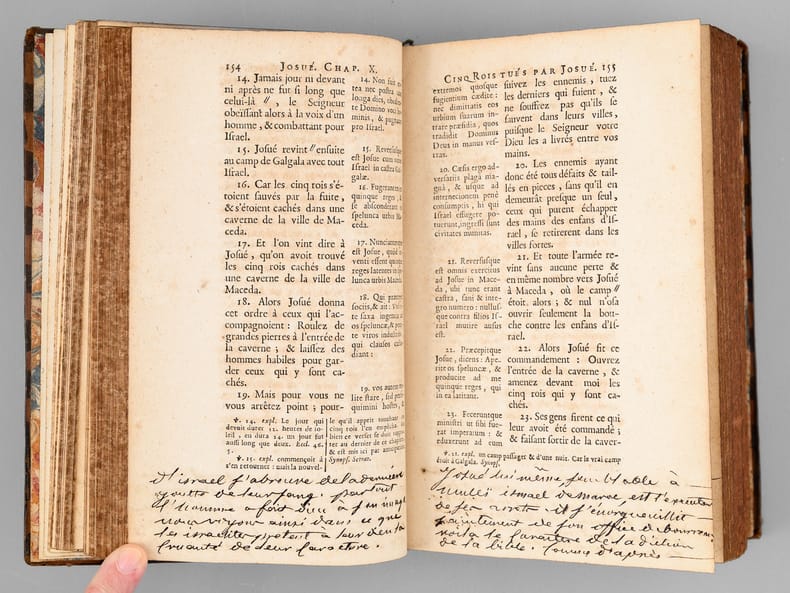 154 JOSUÉ. CHAP. X.
14. Jamais jour ni devant
ni après ne fut si long que
celui-là ", le Seigneur
obéïssant alors à la voix d'un
homme, & combattant pour
Israel.
15. Josué revint " ensuite
au camp de Galgala avec tout
Israel.
16. Car les cinq rois s'é-
toient sauvés par la fuite,
& s'étoient cachés dans une
caverne de la ville de Ma-
ceda.
17. Et l'on vint dire à
Josué, qu'on avoit trouvé
les cinq rois cachés dans
une caverne de la ville de
Maceda.
18. Alors Josué donna
cet ordre à ceux qui l'ac-
compagnoient : Roulez de
grandes pierres à l'entrée de
la caverne ; & laissez des
hommes habiles pour gar-
der ceux qui y sont ca-
chés.
19. Mais pour vous ne
vous arrêtez point ; pour-
14. Non fuit
tea nec postea
longa dies,
te Domino voci
minis, &
pro Israel.
15. Reversus
est Josue cum
Israel in castra
galæ.
16. Fugerant
quinque reges,
se absconderant
spelunca urbis
ceda.
17. Nunciatum
est Josue, quòd
venti essent
reges latentes in
lunca urbis Maceda.
18. Qui
sociis, & ait:
te saxa ingentia
os speluncæ, &
te viros
qui clausos
diant:
19. vos autem
lite stare, sed
quimini hostes,
℣. 14. expl. Le jour qui
devoit durer 12. heures de so-
leil, en dura 24. un jour fut
aussi long que deux. Eccl. 46.
5.
℣. 15. expl. commençoit à
s'en retourner : mais la nouvel-
le qu'il apprit touchant
cinq rois l'en empêcha
bien ce verset se doit
ter au dernier de ce
& est mis ici par
Synops.
d'israel s'abreuve de la dernière
goutte de leur sang. partout
l'homme a fait dieu à son image
nous voyons ainsi dans ce que
les israelites pretent a leur dieu la
cruauté de leur caractere.
CINQ ROIS TUÉS PAR JOSUÉ. 155
extremos quosque
fugientium cædite :
nec dimittatis eos
urbium suarum in-
trare præsidia, quos
tradidit Dominus
Deus in manus ves-
tras.
20. Cæsis ergo ad-
versariis plagâ ma-
gnâ, & usque ad
internecionem penè
consumptis, hi qui
Israel effugere po-
tuerunt, ingressi sunt
civitates munitas.
21. Reversusque
est omnis exercitus
ad Josue in Mace-
da, ubi tunc erant
castra, sani & inte-
gro numero : nullus-
que contra filios Is-
rael mutire ausus
est.
22. Præcepitque
Josue, dicens : Ape-
rite os speluncæ, &
producite ad me
quinque reges, qui
in ea latitant.
23. Feceruntque
ministri ut sibi fue-
rat imperatum : &
eduxerunt ad eum
suivez les ennemis, tuez
les derniers qui fuient, &
ne souffrez pas qu'ils se
sauvent dans leurs villes,
puisque le Seigneur votre
Dieu les a livrés entre vos
mains.
20. Les ennemis ayant
donc été tous défaits & tail-
lés en pieces, sans qu'il en
demeurât presque un seul,
ceux qui purent échapper
des mains des enfans d'Is-
rael, se retirerent dans les
villes fortes.
21. Et toute l'armée re-
vint sans aucune perte &
en même nombre vers Josué
à Maceda, où le camp "
étoit alors ; & nul n'osa
ouvrir seulement la bou-
che contre les enfans d'Is-
rael.
22. Alors Josué fit ce
commandement : Ouvrez
l'entrée de la caverne, &
amenez devant moi les
cinq rois qui y sont ca-
chés.
23. Ses gens firent ce qui
leur avoit été commandé ;
& faisant sortir de la caver-
℣. 21. expl. un camp passager & d'une nuit. Car le vrai camp
étoit à Galgala. Synops.
Josué lui même, semblable à
ismael de maroc, est l'executeur
de ses arrets. il s'enorgueillit
de son office de bourreau
voila le caractere de la diction
de la bible. d'après